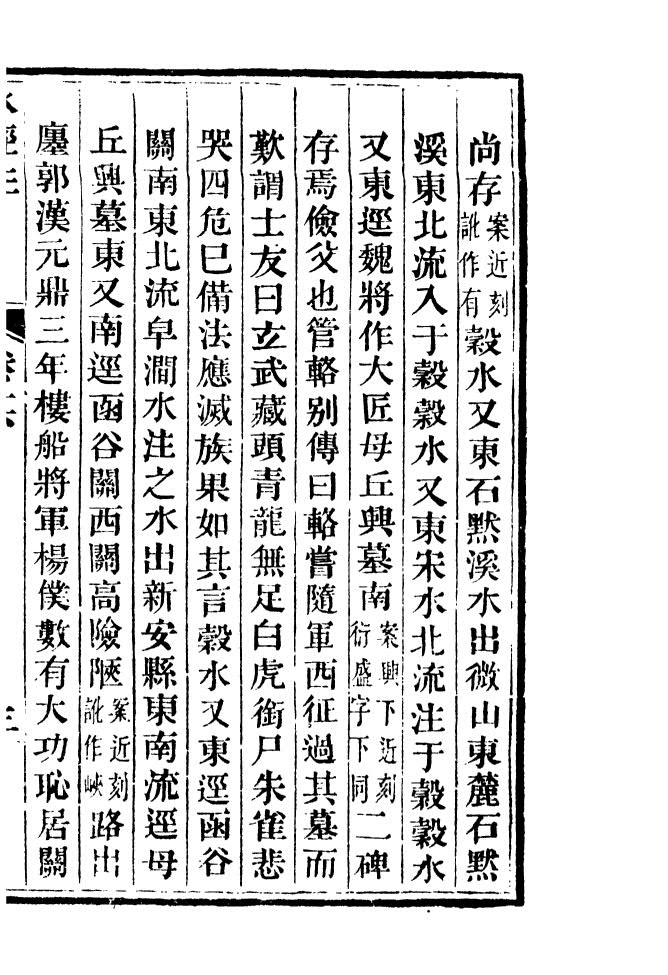 尚存案近刻訛作有穀水又東石默溪水出微山東麓石默
溪東北流入于穀穀水又東宋水北流注于穀穀水
又東逕魏將作大匠毋丘興墓南案興下近刻衍盛字下同二碑
存焉儉父也管輅别傳曰輅嘗隨軍西征過其墓而
歎謂士友曰玄武藏頭青龍無足白虎銜尸朱雀悲
哭四危已備法應滅族果如其言穀水又東逕函谷
關南東北流皁澗水注之水出新安縣東南流逕毋
丘興墓東又南逕函谷關西關高險陿案近刻訛作峽路出
廛郭漢元鼎三年樓船將軍楊僕數有大功恥居關
水經注 卷十六 三